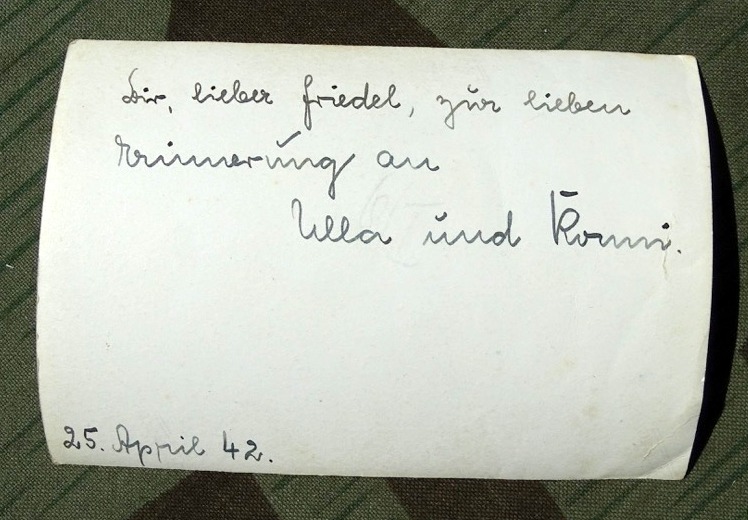 Dir, lieber Friedel, zur lieben
Erinnerung an
Ulla und Konni.
25. April 42.